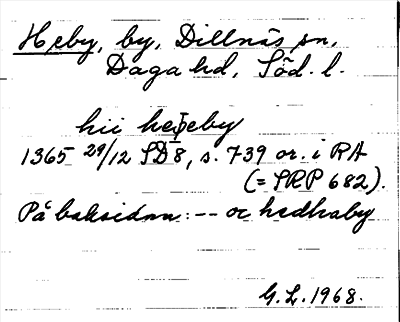 Heby, by, Dillnäs sn,
Daga hd, Söd. l.
hii
1365 29/12 SD 8, s. 739 or. i RA
(= SRP 682).
På baksidan: -- oc hedhaby
G. L. 1968.